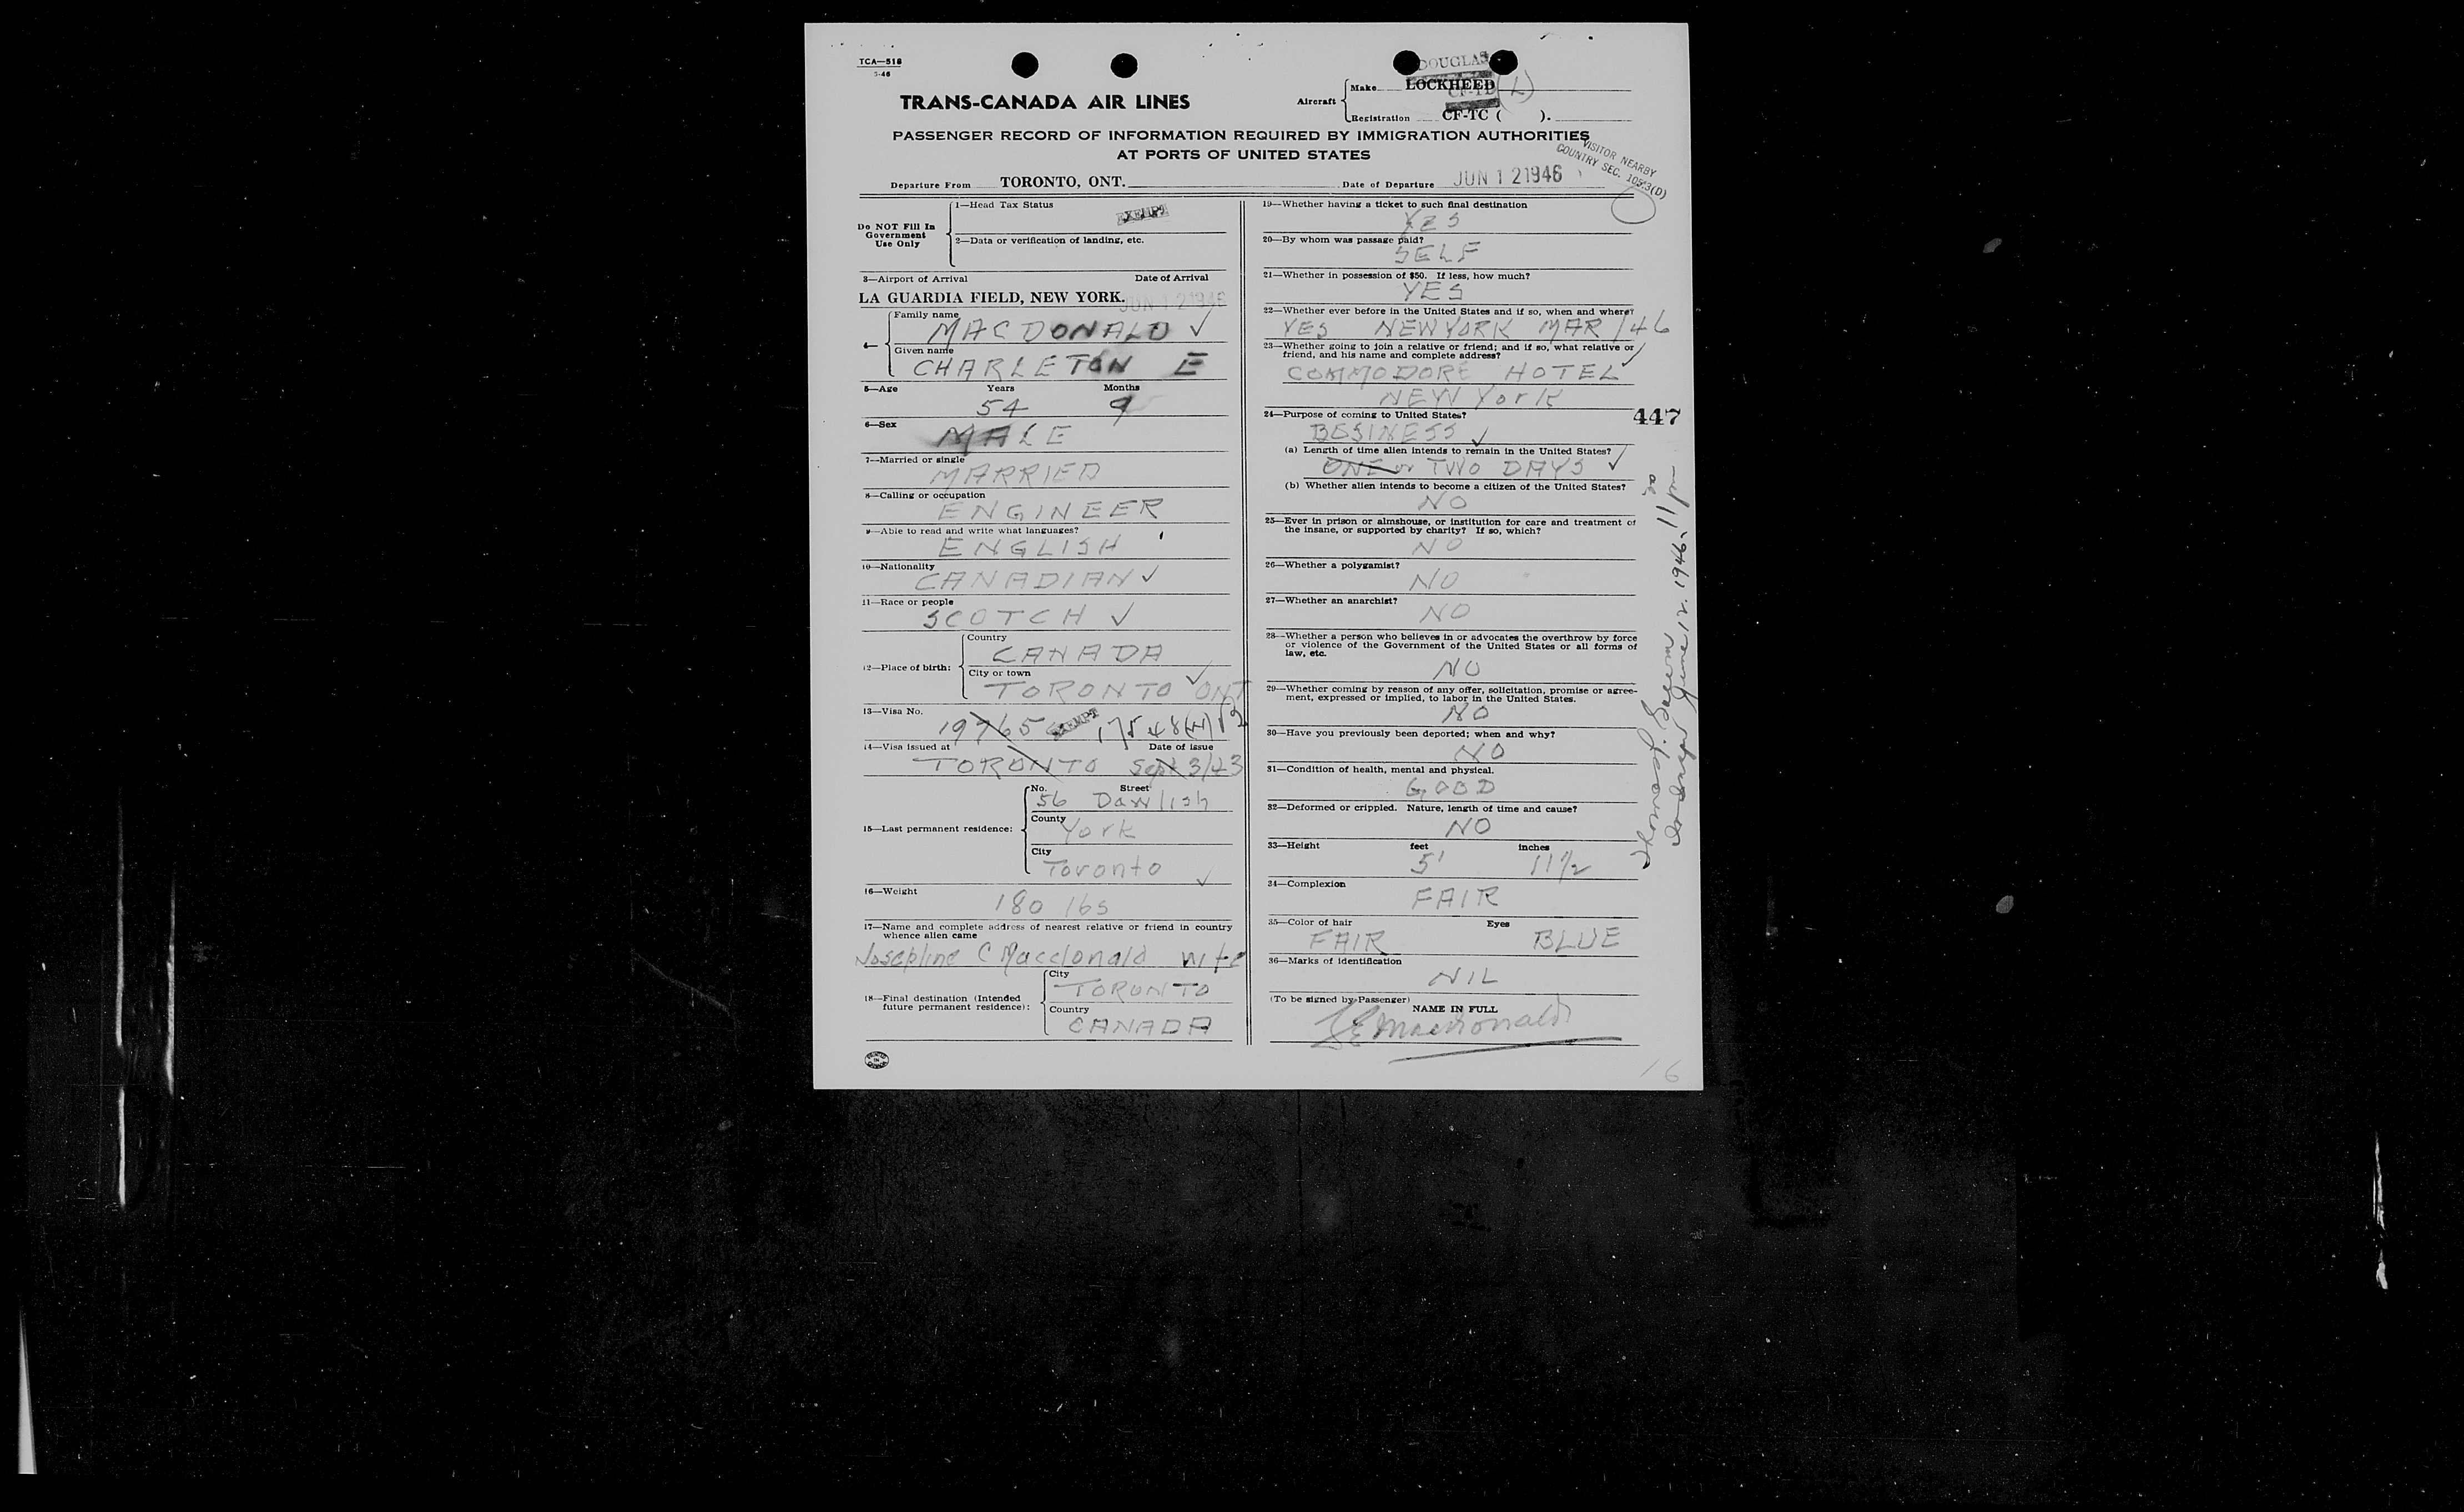 TCA—518
3-46
TRANS-CANADA AIR LINES
DOUGLAS
Aircraft
Make LOCKHEED
CF-TD (L)
Registration CF-TC ( ).
PASSENGER RECORD OF INFORMATION REQUIRED BY IMMIGRATION AUTHORITIES
AT PORTS OF UNITED STATES
VISITOR NEARBY
COUNTRY SEC. 1053(D)
Departure From TORONTO, ONT. Date of Departure JUN 12 1946
Do NOT Fill In
Government
Use Only
1—Head Tax Status
EXEMPT
2—Data or verification of landing, etc.
3—Airport of Arrival Date of Arrival
LA GUARDIA FIELD, NEW YORK. JUN 12 1946
4—
Family name
MACDONALD ✓
Given name
CHARLETON E
5—Age Years Months
54 9
6—Sex
MALE
7—Married or single
MARRIED
8—Calling or occupation
ENGINEER
9—Able to read and write what languages?
ENGLISH
10—Nationality
CANADIAN ✓
11—Race or people
SCOTCH ✓
12—Place of birth:
Country
CANADA
City or town
TORONTO ONT
13—Visa No.
19765 EXEMPT
14—Visa issued at Date of issue
TORONTO Sept 3/43
15—Last permanent residence:
No. Street
56 Dawlish
County
York
City
Toronto ✓
16—Weight
180 lbs
17—Name and complete address of nearest relative or friend in country
whence alien came
Josepline C Macdonald wife
18—Final destination (Intended
future permanent residence):
City
TORONTO
Country
CANADA
19—Whether having a ticket to such final destination
YES
20—By whom was passage paid?
SELF
21—Whether in possession of $50. If less, how much?
YES
22—Whether ever before in the United States and if so, when and where?
YES NEW YORK MAR/46
23—Whether going to join a relative or friend; and if so, what relative or
friend, and his name and complete address?
COMMODORE HOTEL
NEW York
447
24—Purpose of coming to United States?
BUSINESS ✓
(a) Length of time alien intends to remain in the United States?
ONE or TWO DAYS ✓
(b) Whether alien intends to become a citizen of the United States?
NO
25—Ever in prison or almshouse, or institution for care and treatment of
the insane, or supported by charity? If so, which?
NO
26—Whether a polygamist?
NO
27—Whether an anarchist?
NO
28—Whether a person who believes in or advocates the overthrow by force
or violence of the Government of the United States or all forms of
law, etc.
NO
29—Whether coming by reason of any offer, solicitation, promise or agree-
ment, expressed or implied, to labor in the United States.
NO
30—Have you previously been deported; when and why?
NO
31—Condition of health, mental and physical.
GOOD
32—Deformed or crippled. Nature, length of time and cause?
NO
33—Height feet inches
5' 11½
34—Complexion
FAIR
35—Color of hair Eyes
FAIR BLUE
36—Marks of identification
NIL
(To be signed by Passenger)
NAME IN FULL
CE Macdonald
June 12. 1946. 11 pm
16